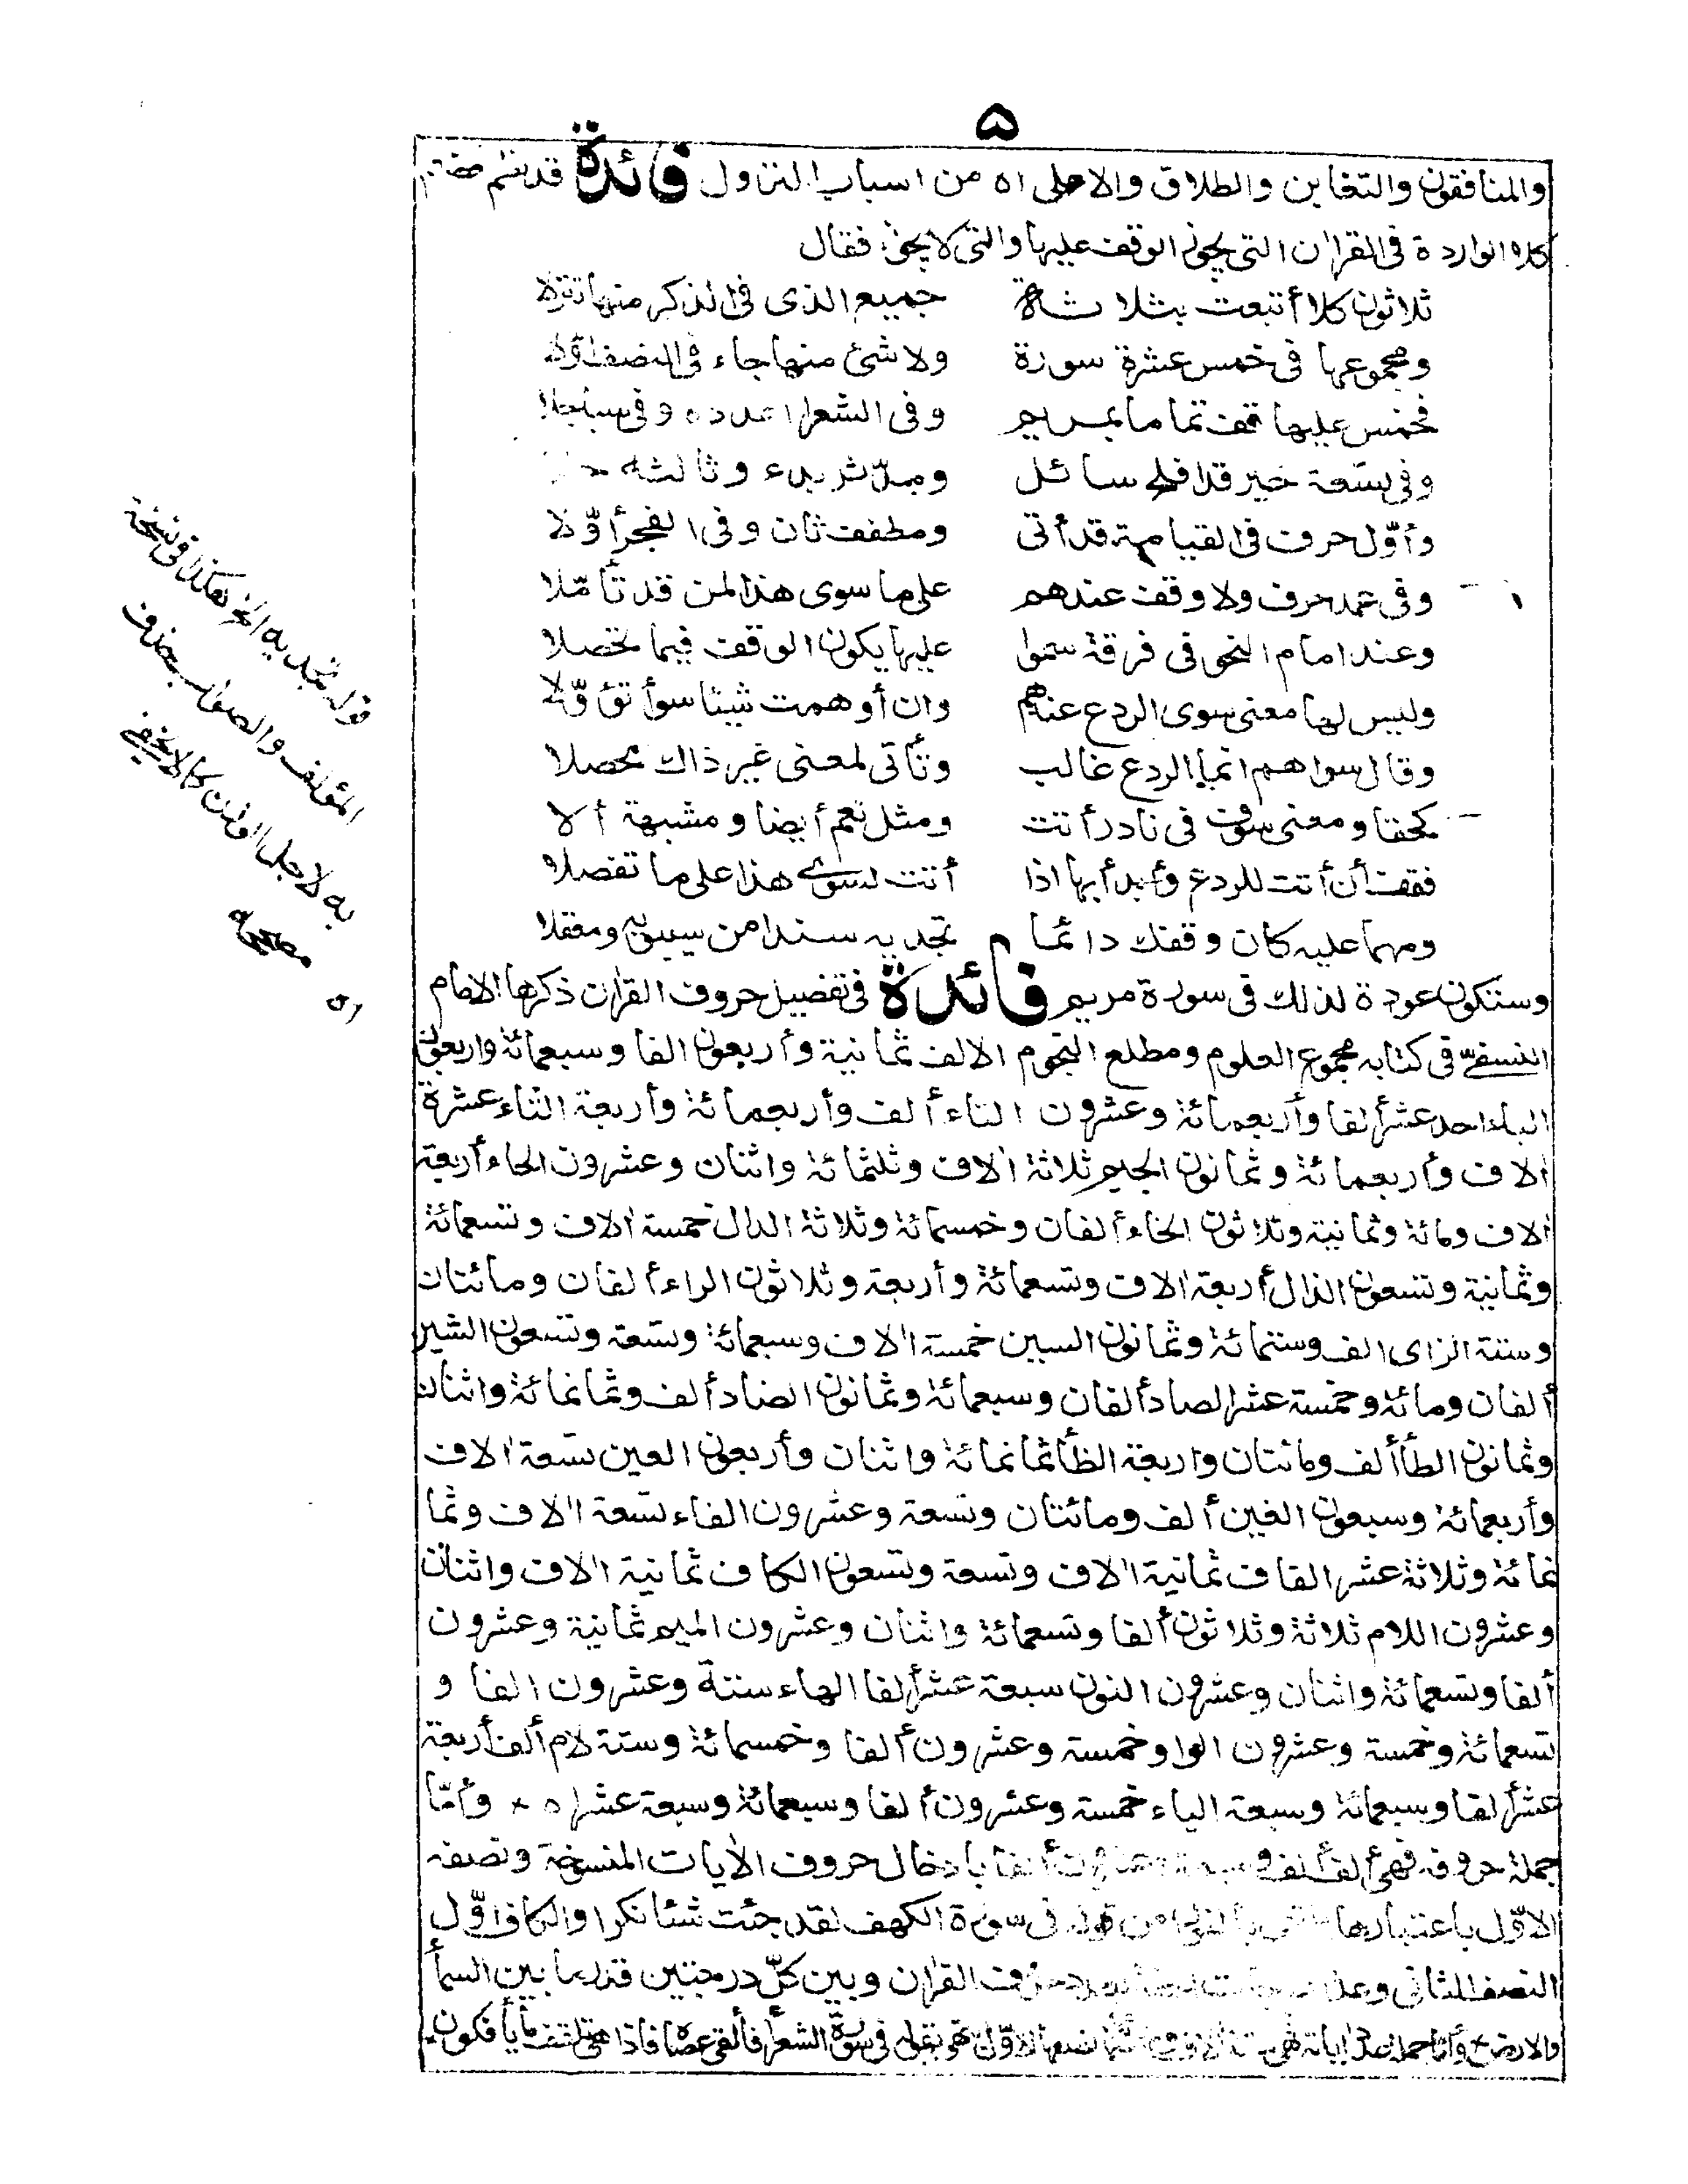 ۵
والمنافقون والتغابن والطلاق والاعلى اه من اسباب النزول فائدة قد نظم
كلا الواردة فى القراٰن التى يجوز الوقف عليها والتى لا يجوز فقال
ثلاثون كلا أتبعت بثلاثة جميع الذى فى الذكر منها تنزلا
ومجموعها فى خمس عشرة سورة ولا شئ منها جاء فى النصف اوّلا
فخمس عليها قف تماما بمريم وفى الشعرا عدده وفى سبأ جلا
وفى تسعة خير قد افلح سائل ومدّثر بدء وثالثه
وأوّل حرف فى القيامة قد أتى ومطفف ثان وفى الفجر أوّلا
وفى عمد حرف ولا وقف عندهم على ما سوى هذا لمن قد تأمّلا
وعند امام النحو فى فرقة سموا عليها يكون الوقف فيما تحصلا
وليس لها معنى سوى الردع عندهم وان أوهمت شيئا سوأ تؤوّلا
وقال سواهم انما الردع غالب وتأتى لمعنى غير ذاك محصلا
كحقا ومعنى سوف فى نادر أتت ومثل نعم أيضا ومشبهة ألا
فقف أن أتت للردع وأبدأ بها اذا أتت لسوى هذا على ما تفصلا
ومهما عليه كان وقفك دائما تجد به سندا من سيبويه ومعقلا
وستكون عودة لذلك فى سورة مريم فائدة فى تفصيل حروف القراٰن ذكرها الامام
النسفىّ فى كتابه مجموع العلوم ومطلع النجوم الالف ثمانية وأربعون الفا وسبعمائة واربعون
الباء احد عشر ألفا وأربعمائة وعشرون التاء ألف وأربعمائة وأربعة الثاء عشرة
اٰلاف وأربعمائة وثمانون الجيم ثلاثة اٰلاف وثلثمائة واثنان وعشرون الحاء أربعة
اٰلاف ومائة وثمانية وثلاثون الخاء ألفان وخمسمائة وثلاثة الدال خمسة اٰلاف وتسعمائة
وثمانية وتسعون الذال أربعة اٰلاف وتسعمائة وأربعة وثلاثون الراء ألفان ومائتان
وستة الزاى الف وستمائة وثمانون السين خمسة اٰلاف وسبعمائة وتسعة وتسعون الشين
ألفان ومائة وخمسة عشر الصاد ألفان وسبعمائة وثمانون الضاد ألف وثمانمائة واثنان
وثمانون الطأ ألف ومائتان واربعة الظأ ثمانمائة واثنان وأربعون العين تسعة اٰلاف
وأربعمائة وسبعون الغين ألف ومائتان وتسعة وعشرون الفاء تسعة اٰلاف وثما
نمائة وثلاثة عشر القاف ثمانية اٰلاف وتسعة وتسعون الكاف ثمانية اٰلاف واثنان
وعشرون اللام ثلاثة وثلاثون ألفا وتسعمائة واثنان وعشرون الميم ثمانية وعشرون
ألفا وتسعمائة واثنان وعشرون النون سبعة عشر ألفا الهاء ستة وعشرون الفا و
تسعمائة وخمسة وعشرون الواو خمسة وعشرون ألفا وخمسمائة وستة لام ألف أربعة
عشر ألفا وسبعمائة وسبعة الياء خمسة وعشرون ألفا وسبعمائة وسبعة عشر اه × وأمّا
جملة حروفه فهى ألف ألف وسبعة وعشرون ألفا بادخال حروف الاٰيات المنسوخة ونصفه
الاوّل باعتبارها من قوله فى سورة الكهف لقد جئت شئا نكرا والكاف اوّل
النصف الثانى وعدد حروف القراٰن وبين كلّ درجتين قدر ما بين السمأ
والارض وأمّا جملة عدد اٰياته فهى نصفها الاوّل بقوله فى سورة الشعرأ فألقى عصاه فاذا هى تلقف ما يأفكون
قوله تجد به الخ هكذا فى نسخة
المؤلف والصواب بحذف
به لاجل الوزن كما لا يخفى
اه مصححه